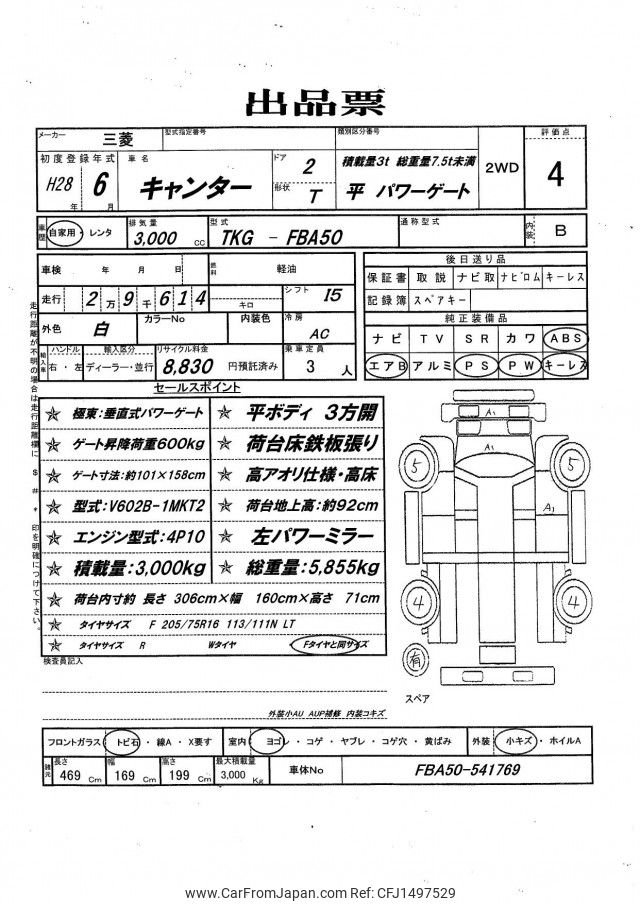 出品票
メーカー 三菱 型式指定番号 類別区分番号 2WD 評価点 4
初度登録年式 H28年 6月 車名 キャンター ドア 2 形状 T 積載量3t 総重量7.5t未満
平 パワーゲート
車歴 自家用・レンタ 排気量 3,000 cc 型式 TKG - FBA50 通称型式 内装 B
車検 年 月 日 燃料 軽油
走行 2万9千614 キロ シフト I5
外色 白 カラーNo 内装色 冷房 AC
輸入車 ハンドル 右・左 輸入区分 ディーラー・並行 リサイクル料金 8,830 円預託済み 乗車定員 3 人
後日送り品
保証書 取説 ナビ取 ナビロム キーレス
記録簿 スペアキー
純正装備品
ナビ TV SR カワ ABS
エアB アルミ PS PW キーレス
走行距離が不明の場合は走行距離欄に $ # * 印を明確につけて下さい。
セールスポイント
☆ 極東:垂直式パワーゲート ☆ 平ボディ 3方開
☆ ゲート昇降荷重600kg ☆ 荷台床鉄板張り
☆ ゲート寸法:約101×158cm ☆ 高アオリ仕様・高床
☆ 型式:V602B-1MKT2 ☆ 荷台地上高:約92cm
☆ エンジン型式:4P10 ☆ 左パワーミラー
☆ 積載量:3,000kg ☆ 総重量:5,855kg
☆ 荷台内寸約 長さ 306cm×幅 160cm×高さ 71cm
☆ タイヤサイズ F 205/75R16 113/111N LT
☆ タイヤサイズ R Wタイヤ Fタイヤと同サイズ
A1
A1
5
5
A1
4
4
有
スペア
検査員記入
外装小AU AUP補修 内装コキズ
フロントガラス トビ石・線A・X要す 室内 ヨゴレ・コゲ・ヤブレ・コゲ穴・黄ばみ 外装 小キズ・ホイルA
諸元 長さ 469 Cm 幅 169 Cm 高さ 199 Cm 最大積載量 3,000 Kg 車体No FBA50-541769
www.CarFromJapan.com Ref: CFJ1497529